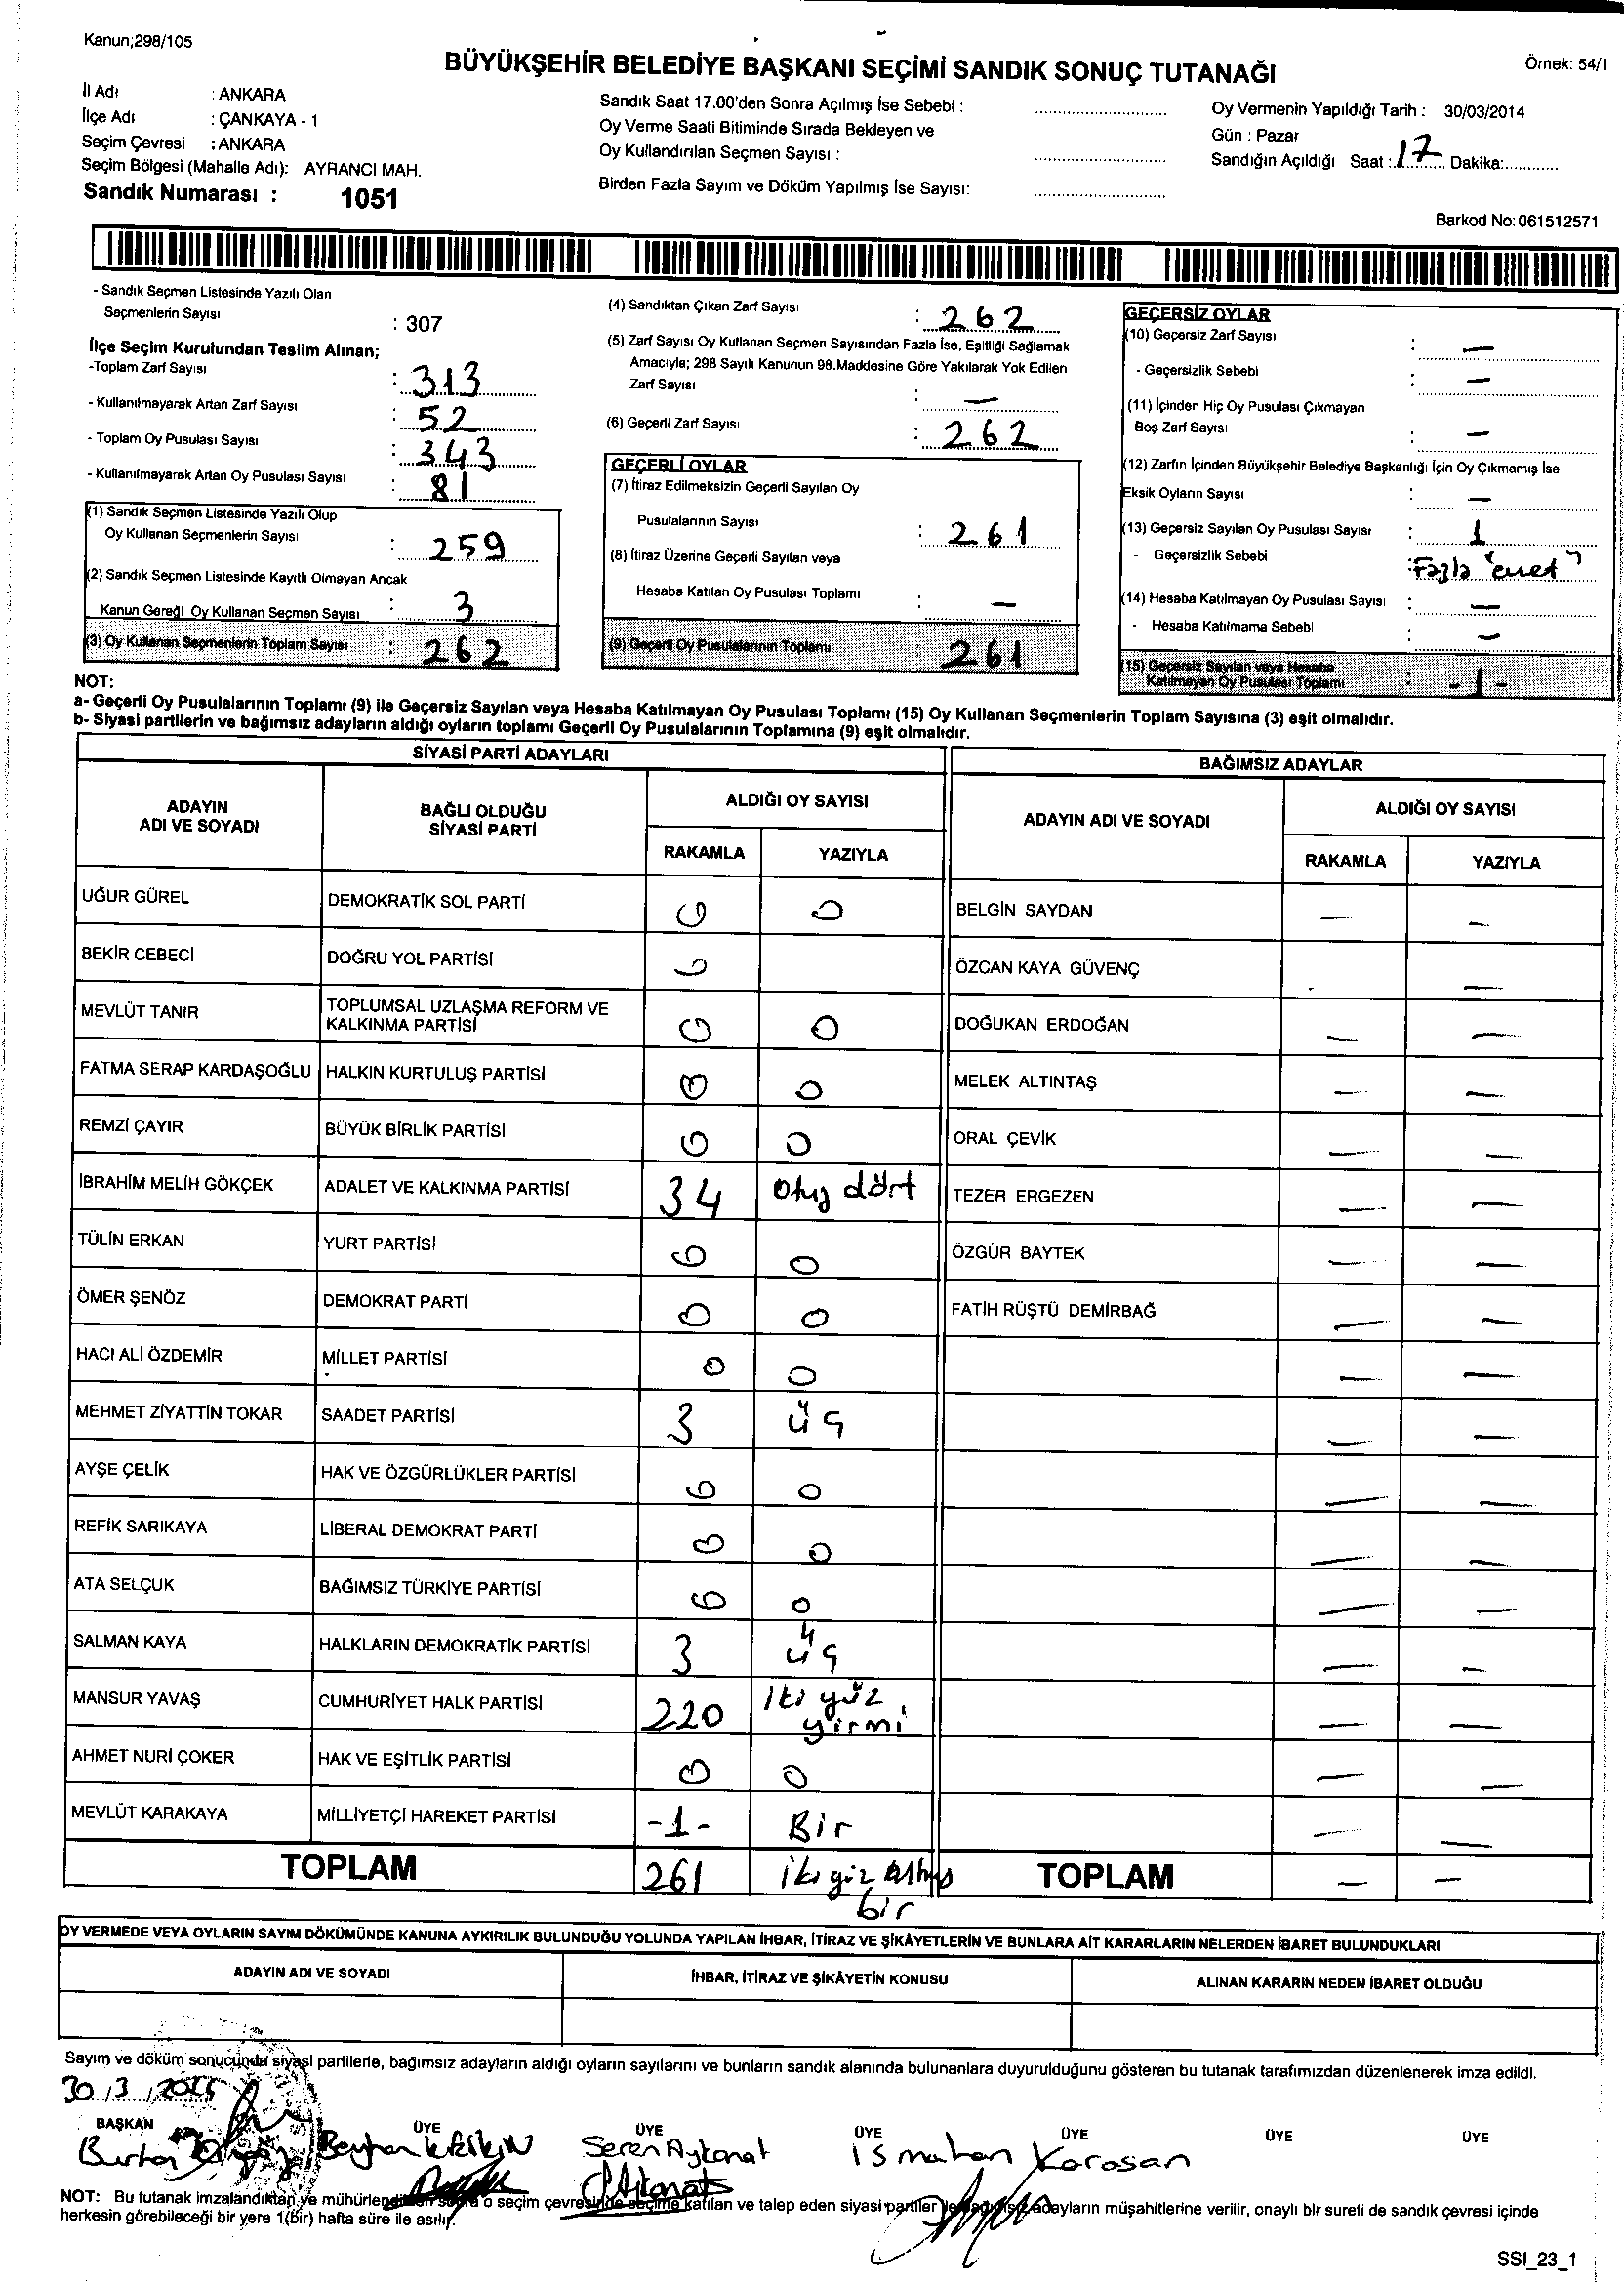 Kanun;298/105
BÜYÜKŞEHİR BELEDİYE BAŞKANI SEÇİMİ SANDIK SONUÇ TUTANAĞI
Örnek: 54/1
İl Adı : ANKARA
İlçe Adı : ÇANKAYA - 1
Seçim Çevresi : ANKARA
Seçim Bölgesi (Mahalle Adı): AYRANCI MAH.
Sandık Numarası : 1051
Sandık Saat 17.00'den Sonra Açılmış İse Sebebi :
Oy Verme Saati Bitiminde Sırada Bekleyen ve
Oy Kullandırılan Seçmen Sayısı :
Birden Fazla Sayım ve Döküm Yapılmış İse Sayısı:
Oy Vermenin Yapıldığı Tarih : 30/03/2014
Gün : Pazar
Sandığın Açıldığı Saat : 17 Dakika:
Barkod No: 061512571
- Sandık Seçmen Listesinde Yazılı Olan
Seçmenlerin Sayısı : 307
İlçe Seçim Kurulundan Teslim Alınan;
-Toplam Zarf Sayısı : 313
- Kullanılmayarak Artan Zarf Sayısı : 52
- Toplam Oy Pusulası Sayısı : 343
- Kullanılmayarak Artan Oy Pusulası Sayısı : 81
(1) Sandık Seçmen Listesinde Yazılı Olup
Oy Kullanan Seçmenlerin Sayısı : 259
(2) Sandık Seçmen Listesinde Kayıtlı Olmayan Ancak
Kanun Gereği Oy Kullanan Seçmen Sayısı : 3
(3) Oy Kullanan Seçmenlerin Toplam Sayısı : 262
(4) Sandıktan Çıkan Zarf Sayısı : 262
(5) Zarf Sayısı Oy Kullanan Seçmen Sayısından Fazla İse, Eşitliği Sağlamak
Amacıyla; 298 Sayılı Kanunun 98.Maddesine Göre Yakılarak Yok Edilen
Zarf Sayısı : —
(6) Geçerli Zarf Sayısı : 262
GEÇERLİ OYLAR
(7) İtiraz Edilmeksizin Geçerli Sayılan Oy
Pusulalarının Sayısı : 261
(8) İtiraz Üzerine Geçerli Sayılan veya
Hesaba Katılan Oy Pusulası Toplamı : —
(9) Geçerli Oy Pusulalarının Toplamı 261
GEÇERSİZ OYLAR
(10) Geçersiz Zarf Sayısı : —
- Geçersizlik Sebebi : —
(11) İçinden Hiç Oy Pusulası Çıkmayan
Boş Zarf Sayısı : —
(12) Zarfın İçinden Büyükşehir Belediye Başkanlığı İçin Oy Çıkmamış İse
Eksik Oyların Sayısı : —
(13) Geçersiz Sayılan Oy Pusulası Sayısı : 1
- Geçersizlik Sebebi : Fazla "evet"
(14) Hesaba Katılmayan Oy Pusulası Sayısı : —
- Hesaba Katılmama Sebebi : —
(15) Geçersiz Sayılan veya Hesaba
Katılmayan Oy Pusulası Toplamı : -1-
NOT:
a- Geçerli Oy Pusulalarının Toplamı (9) ile Geçersiz Sayılan veya Hesaba Katılmayan Oy Pusulası Toplamı (15) Oy Kullanan Seçmenlerin Toplam Sayısına (3) eşit olmalıdır.
b- Siyasi partilerin ve bağımsız adayların aldığı oyların toplamı Geçerli Oy Pusulalarının Toplamına (9) eşit olmalıdır.
SİYASİ PARTİ ADAYLARI
BAĞIMSIZ ADAYLAR
ADAYIN ADI VE SOYADI BAĞLI OLDUĞU SİYASİ PARTİ ALDIĞI OY SAYISI ADAYIN ADI VE SOYADI ALDIĞI OY SAYISI
RAKAMLA YAZIYLA RAKAMLA YAZIYLA
UĞUR GÜREL DEMOKRATİK SOL PARTİ 0 0 BELGİN SAYDAN — —
BEKİR CEBECİ DOĞRU YOL PARTİSİ 0 ÖZCAN KAYA GÜVENÇ - —
MEVLÜT TANIR TOPLUMSAL UZLAŞMA REFORM VE KALKINMA PARTİSİ 0 0 DOĞUKAN ERDOĞAN — —
FATMA SERAP KARDAŞOĞLU HALKIN KURTULUŞ PARTİSİ 0 0 MELEK ALTINTAŞ — —
REMZİ ÇAYIR BÜYÜK BİRLİK PARTİSİ 0 0 ORAL ÇEVİK — —
İBRAHİM MELİH GÖKÇEK ADALET VE KALKINMA PARTİSİ 34 otuz dört TEZER ERGEZEN — —
TÜLİN ERKAN YURT PARTİSİ 0 0 ÖZGÜR BAYTEK — —
ÖMER ŞENÖZ DEMOKRAT PARTİ 0 0 FATİH RÜŞTÜ DEMİRBAĞ — —
HACI ALİ ÖZDEMİR MİLLET PARTİSİ 0 0 — —
MEHMET ZİYATTİN TOKAR SAADET PARTİSİ 3 üç — —
AYŞE ÇELİK HAK VE ÖZGÜRLÜKLER PARTİSİ 0 0 — —
REFİK SARIKAYA LİBERAL DEMOKRAT PARTİ 0 0 — —
ATA SELÇUK BAĞIMSIZ TÜRKİYE PARTİSİ 0 0 — —
SALMAN KAYA HALKLARIN DEMOKRATİK PARTİSİ 3 üç — —
MANSUR YAVAŞ CUMHURİYET HALK PARTİSİ 220 iki yüz yirmi — —
AHMET NURİ ÇOKER HAK VE EŞİTLİK PARTİSİ 0 0 — —
MEVLÜT KARAKAYA MİLLİYETÇİ HAREKET PARTİSİ -1- Bir — —
TOPLAM 261 iki yüz altmış bir TOPLAM — —
OY VERMEDE VEYA OYLARIN SAYIM DÖKÜMÜNDE KANUNA AYKIRILIK BULUNDUĞU YOLUNDA YAPILAN İHBAR, İTİRAZ VE ŞİKÂYETLERİN VE BUNLARA AİT KARARLARIN NELERDEN İBARET BULUNDUKLARI
ADAYIN ADI VE SOYADI İHBAR, İTİRAZ VE ŞİKÂYETİN KONUSU ALINAN KARARIN NEDEN İBARET OLDUĞU
Sayım ve döküm sonucunda siyasi partilerle, bağımsız adayların aldığı oyların sayılarını ve bunların sandık alanında bulunanlara duyurulduğunu gösteren bu tutanak tarafımızdan düzenlenerek imza edildi.
30/3/
BAŞKAN ÜYE ÜYE ÜYE ÜYE ÜYE ÜYE
Seren Aykanat İsmahan Karasan
NOT: Bu tutanak imzalandıktan ve mühürlendikten sonra o seçim çevresinde seçime katılan ve talep eden siyasi partiler adayların müşahitlerine verilir, onaylı bir sureti de sandık çevresi içinde
herkesin görebileceği bir yere 1(Bir) hafta süre ile asılır.
SSI_23_1